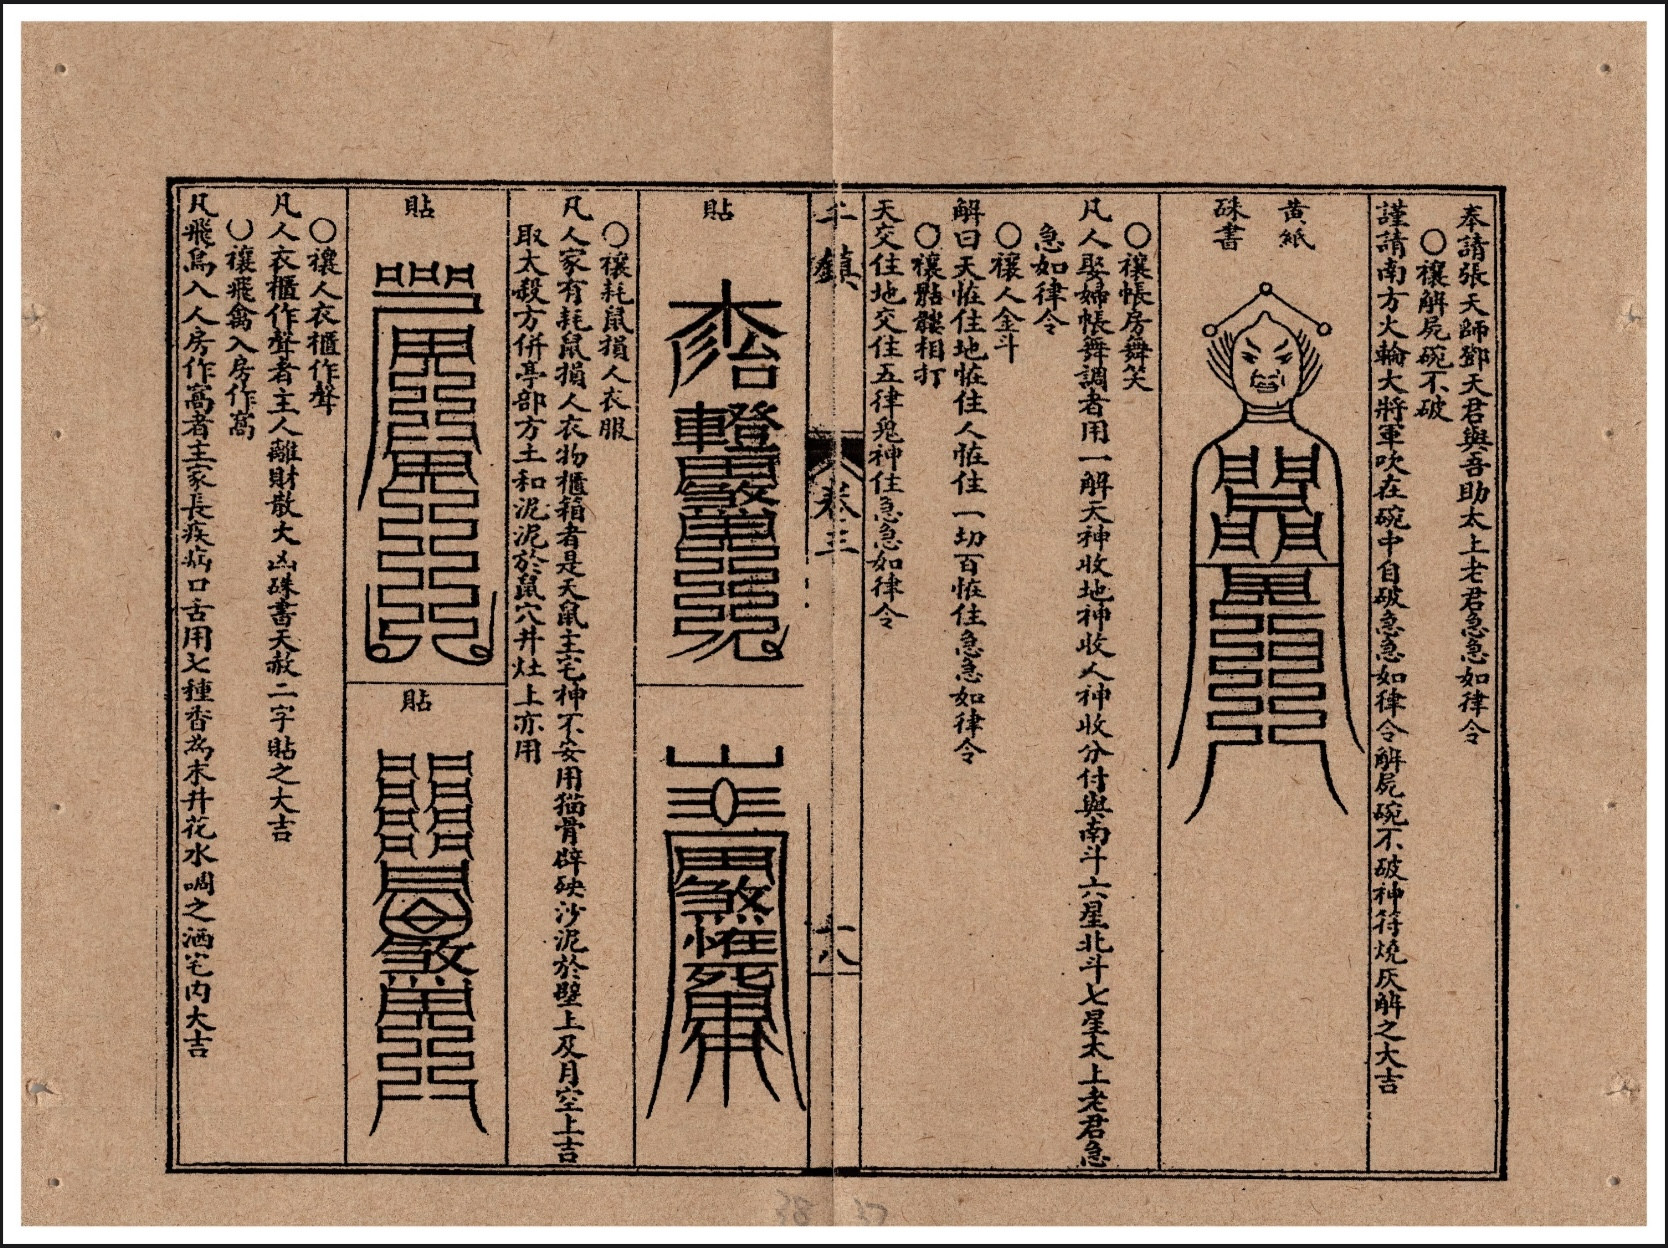 奉請張天師鄧天君與吾助太上老君急急如律令
○禳解屍碗不破
謹請南方火輪大將軍吹在碗中自破急急如律令解屍碗不破神符燒灰解之大吉
黃紙
硃書
○禳帳房舞笑
凡人娶婦帳舞調者用一解天神收地神收人神收分付與南斗六星北斗七星太上老君急
急如律令
○禳人金斗
解曰天恠住地恠住人恠住一切百恠住急急如律令
○禳骷髏相打
天交住地交住五律鬼神住急急如律令
鎮
卷三
十八
貼
○禳耗鼠損人衣服
凡人家有耗鼠損人衣物櫃箱者是天鼠主宅神不安用猫骨辟砄沙泥於壁上及月空上吉
取太殺方併亭部方土和泥泥於鼠穴井灶上亦用
貼
貼
○禳人衣櫃作聲
凡人衣櫃作聲者主人離財散大凶硃書天赦二字貼之大吉
○禳飛禽入房作窩
凡飛鳥入人房作窩者主家長疾病口舌用七種香為末井花水調之洒宅內大吉
38 37